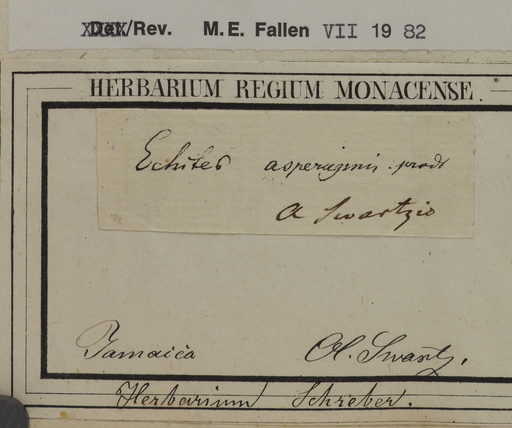 Det/Rev. M.E. Fallen VII 19 82
HERBARIUM REGIUM MONACENSE.
Echites asperuginis. prodr
a Swartzio
Jamaica Ol. Swartz.
Herbarium Schreber.